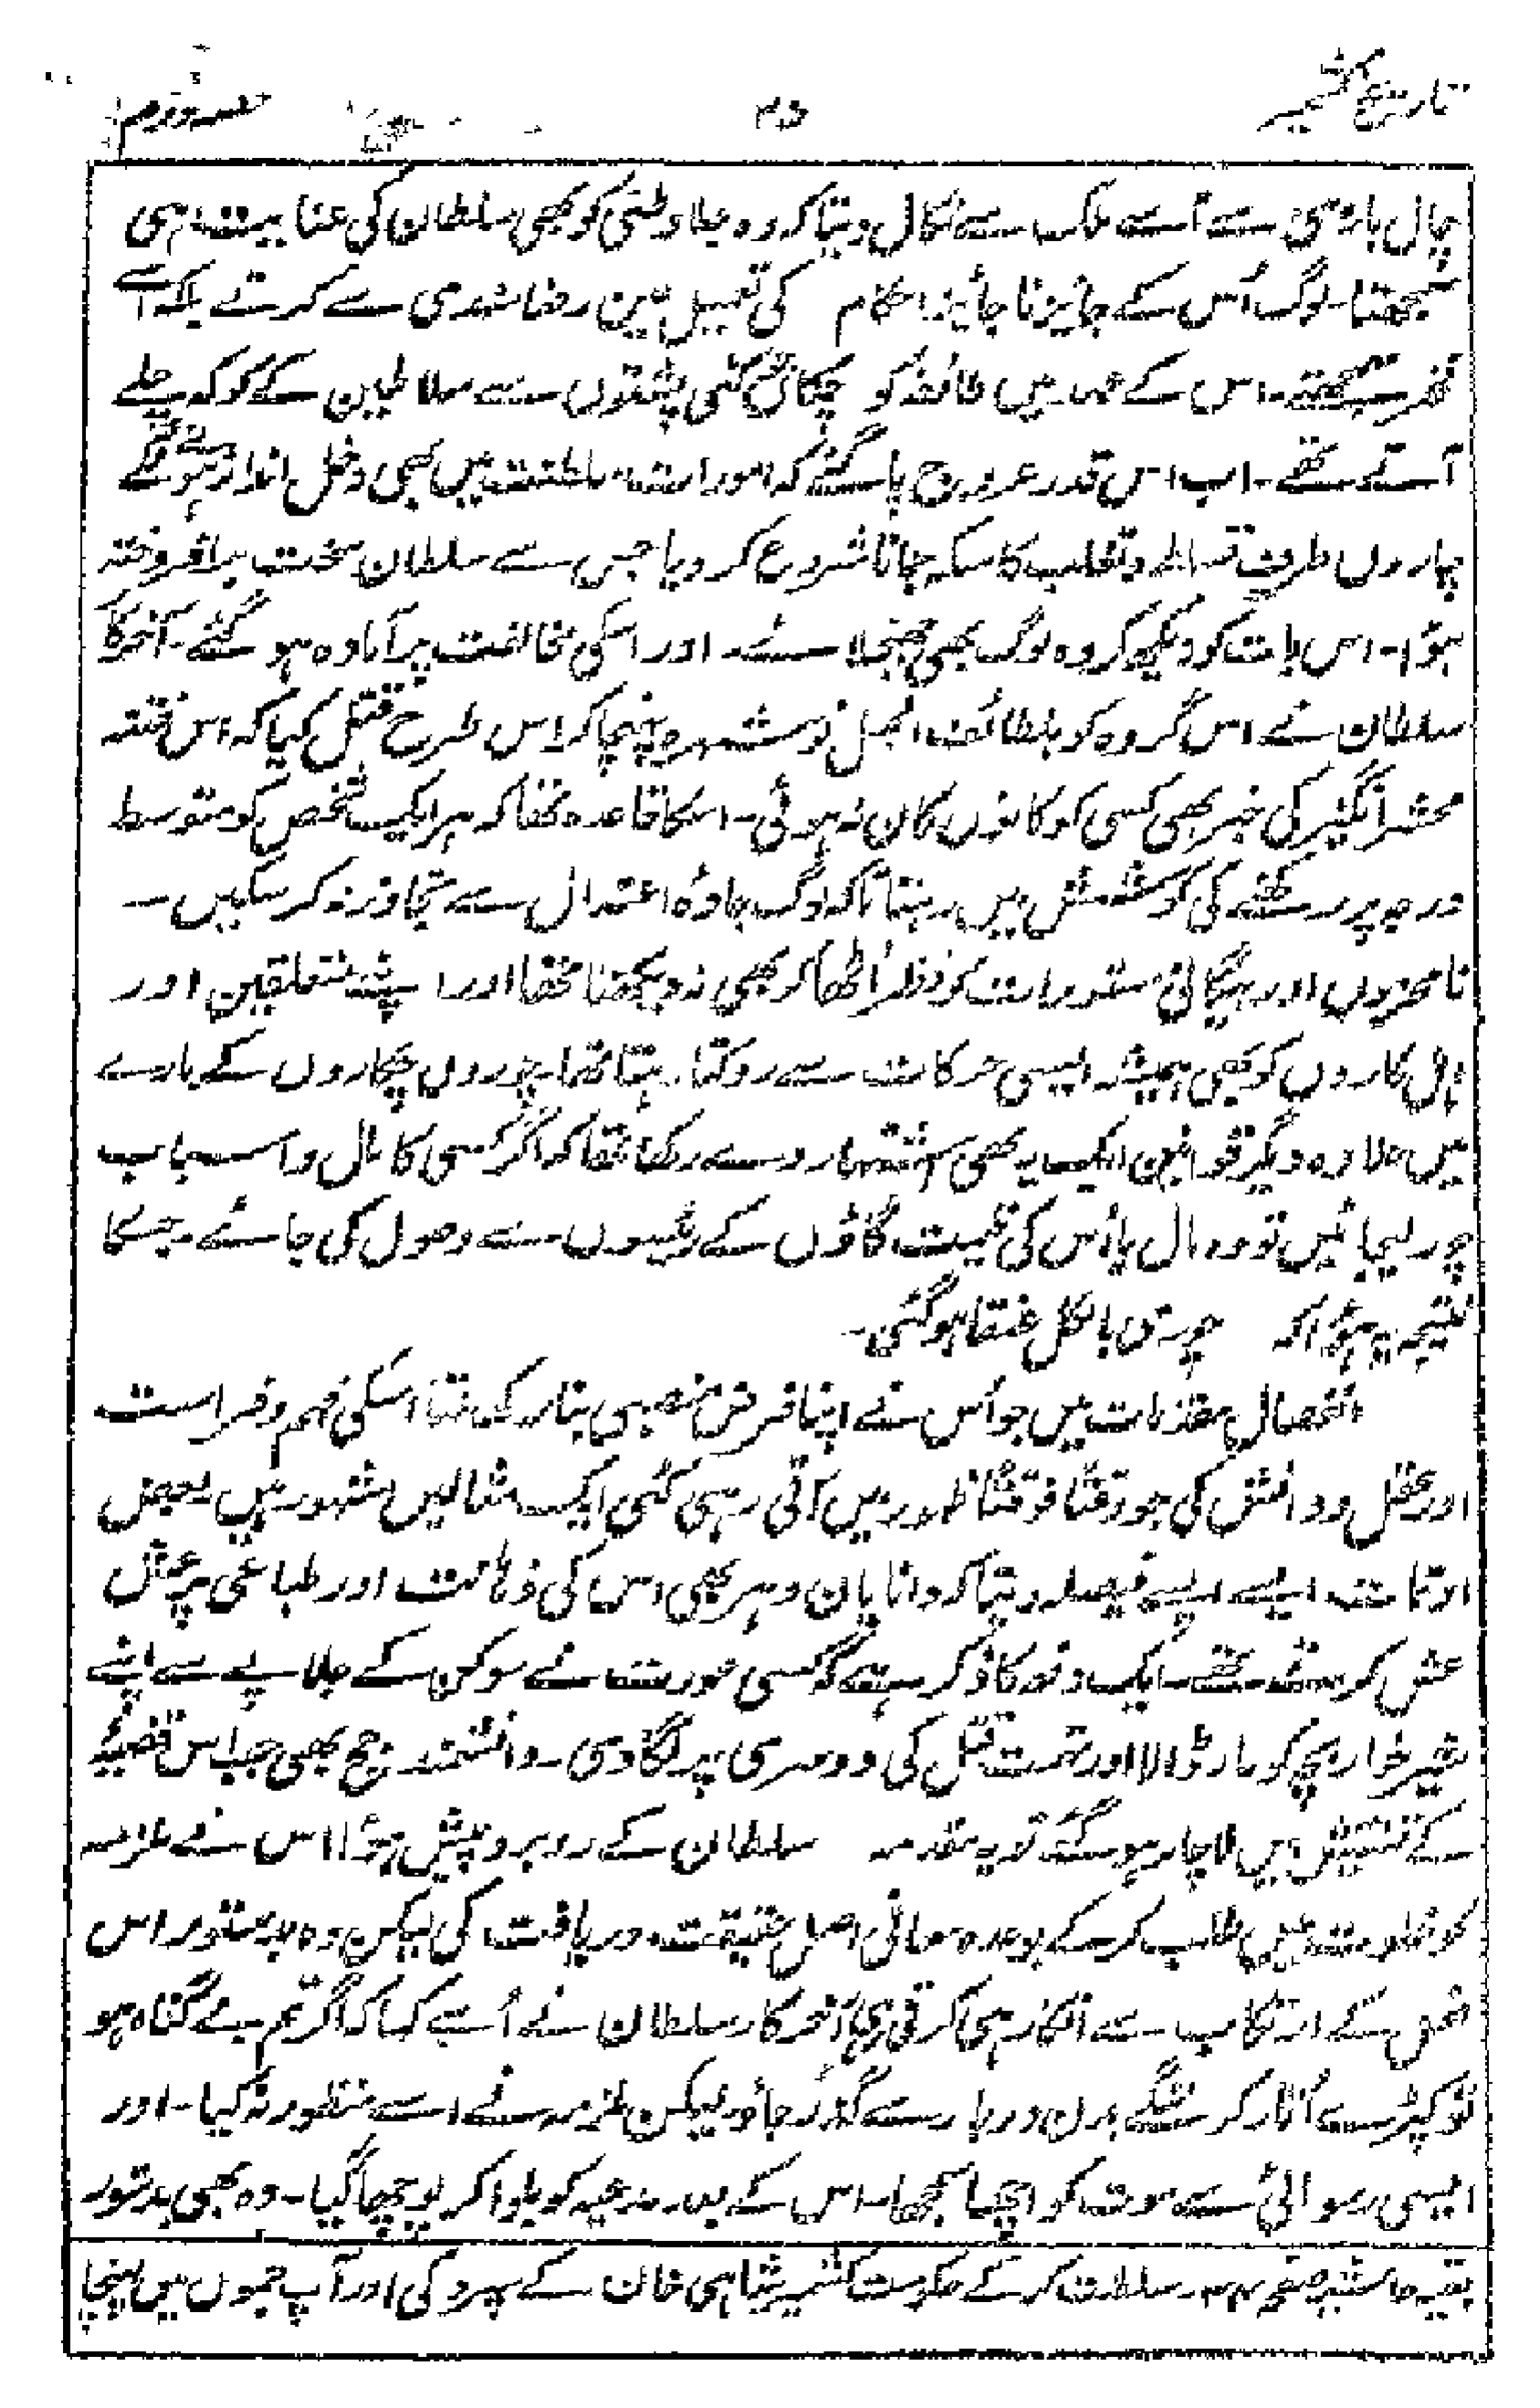 تاریخ کشمیر
۴۵
حصہ دوم
چال بازی سے اُسے ملک سے نکال دیتا کہ وہ جلاوطنی کو بھی سلطان کی عنایت ہی
سمجھتا۔ لوگ اُس کے جائز ناجائز احکام کی تعمیل عین رضامندی سے کرتے بلکہ اسے
فخر سمجھتے۔ اس کے عہد میں طائفہ کو چکاں جو کئی پشتوں سے سلاطین کے کوکہ چلے
آتے تھے۔ اب اس قدر عروج پا گئے کہ امورات سلطنت میں بھی دخل انداز ہوتے تھے
چاروں طرف تسلط و تغلب کا سکہ جمانا شروع کر دیا جس سے سلطان سخت برافروختہ
ہؤا۔ اس بات کو دیکھ کر وہ لوگ بھی جھنجلائے۔ اور اسکی مخالفت پر آمادہ ہو گئے۔ آخر کار
سلطان نے اس گروہ کو بلطائف الحیل نوشہرہ پہنچا کر اس طرح قتل کیا کہ اس فتنہ
محشر انگیز کی خبر بھی کسی کو کانوں کان نہ ہوئی۔ اسکا قاعدہ تھا کہ ہر ایک شخص کو متوسط
درجہ پر رکھنے کی کوشش میں رہتا تاکہ لوگ جادۂ اعتدال سے تجاوز نہ کر سکیں۔
نامحرموں اور بیگانی مستورات کو نظر اُٹھا کر بھی نہ دیکھتا تھا اور اپنے متعلقین اور
اہل کاروں کو بھی ہمیشہ ایسی حرکات سے روکتا رہتا تھا۔ چوروں چکاروں کے بارے
میں علاوہ دیگر قوانین ایک یہ بھی اشتہار دے رکھا تھا کہ اگر کسی کا مال و اسباب
چور لیجائیں تو وہ مال یا اُس کی قیمت گاؤں کے رئیسوں سے وصول کی جائے۔ جسکا
نتیجہ یہ ہؤا کہ چوری بالکل عنقا ہو گئی۔
انفصال مقدمات میں جو اُس نے اپنا فرض منصبی بنا رکھا تھا اسکی فہم و فراست
اور عقل و دانش کی جو وقتاً فوقتاً ظہور میں آتی رہی کئی ایک مثالیں مشہور ہیں۔ بعض
اوقات ایسے ایسے فیصلہ دیتا کہ دانایان دہر بھی اس کی ذہانت اور طباعی پر عش
عش کرتے تھے۔ ایک دفعہ کا ذکر ہے کہ کسی عورت نے سوکن کے جلاپے سے اپنے
شیر خوار بچہ کو مار ڈالا اور تہمت قتل کی دوسری پر لگا دی۔ دانشمند جج بھی جب اس قضیہ
کے تفتیش میں لاچار ہو گئے تو یہ مقدمہ سلطان کے روبرو پیش ہؤا اس نے ملزمہ
کو خلوت میں طلب کر کے بوعدہ معافی اصل حقیقت دریافت کی لیکن وہ بدستور اس
فعل کے ارتکاب سے انکار ہی کرتی رہی آخر کار سلطان نے اُسے کہا کہ اگر تم بے گناہ ہو
تو کپڑے اُتار کر ننگے بدن دربار سے گذر جاؤ لیکن ملزمہ نے اسے منظور نہ کیا۔ اور
ایسی رسوائی سے موت کو اچھا سمجھا۔ اس کے بعد مدعیہ کو بلوا کر پوچھا گیا۔ وہ بھی بدستور
بقیہ حاشیہ صفحہ ۴۴ سلطان کر کے حکومت کشمیر شاہی خان کے سپرد کی اور آپ جموں میں پہنچا